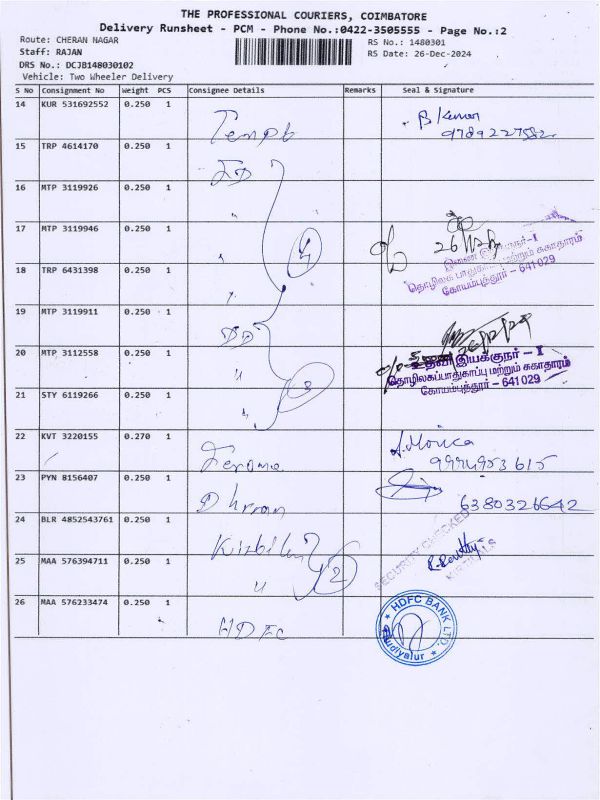 THE PROFESSIONAL COURIERS, COIMBATORE
Delivery Runsheet - PCM - Phone No.:0422-3505555 - Page No.:2
Route: CHERAN NAGAR RS No.: 1480301
Staff: RAJAN RS Date: 26-Dec-2024
DRS No.: DCJB148030102
Vehicle: Two Wheeler Delivery
S No Consignment No Weight PCS Consignee Details Remarks Seal & Signature
14 KUR 531692552 0.250 1 B Kumar
15 TRP 4614170 0.250 1
16 MTP 3119926 0.250 1
17 MTP 3119946 0.250 1 4
இணை இயக்குநர்-I
தொழிலகப் பாதுகாப்பு மற்றும் சுகாதாரம்
கோயம்புத்தூர் – 641 029
18 TRP 6431398 0.250 1
19 MTP 3119911 0.250 1 DD
20 MTP 3112558 0.250 1 "
உதவி இயக்குநர் – I
தொழிலகப்பாதுகாப்பு மற்றும் சுகாதாரம்
கோயம்புத்தூர் – 641 029
21 STY 6119266 0.250 1 3
22 KVT 3220155 0.270 1 Jerome A. Monica
23 PYN 8156407 0.250 1 6380326642
24 BLR 4852543761 0.250 1 SECURITY CHECKED
25 MAA 576394711 0.250 1 " 2
26 MAA 576233474 0.250 1 HDFC HDFC BANK LTD.